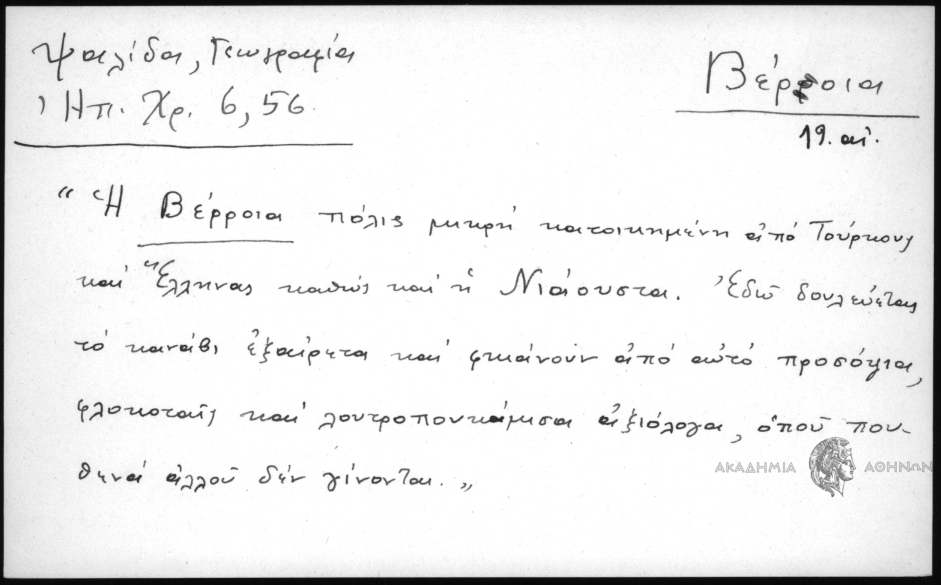 Ψαλίδα, Γεωγραφία
Ἠπ. Χρ. 6, 56.
Βέρροια
19. αἰ.
“Ἡ Βέρροια πόλις μικρή κατοικημένη ἀπό Τούρκους
καί Ἕλληνας καθώς καί ἡ Νιάουστα. Ἐδῶ δουλεύεται
τό κανάβι ἐξαίρετα καί φκιάνουν ἀπό αὐτό προσόψια,
φλοκοταῖς καί λουτροπουκάμισα ἀξιόλογα, ὁποῦ που-
θενά ἀλλοῦ δέν γίνονται.„
ΑΚΑΔΗΜΙΑ ΑΘΗΝΩΝ